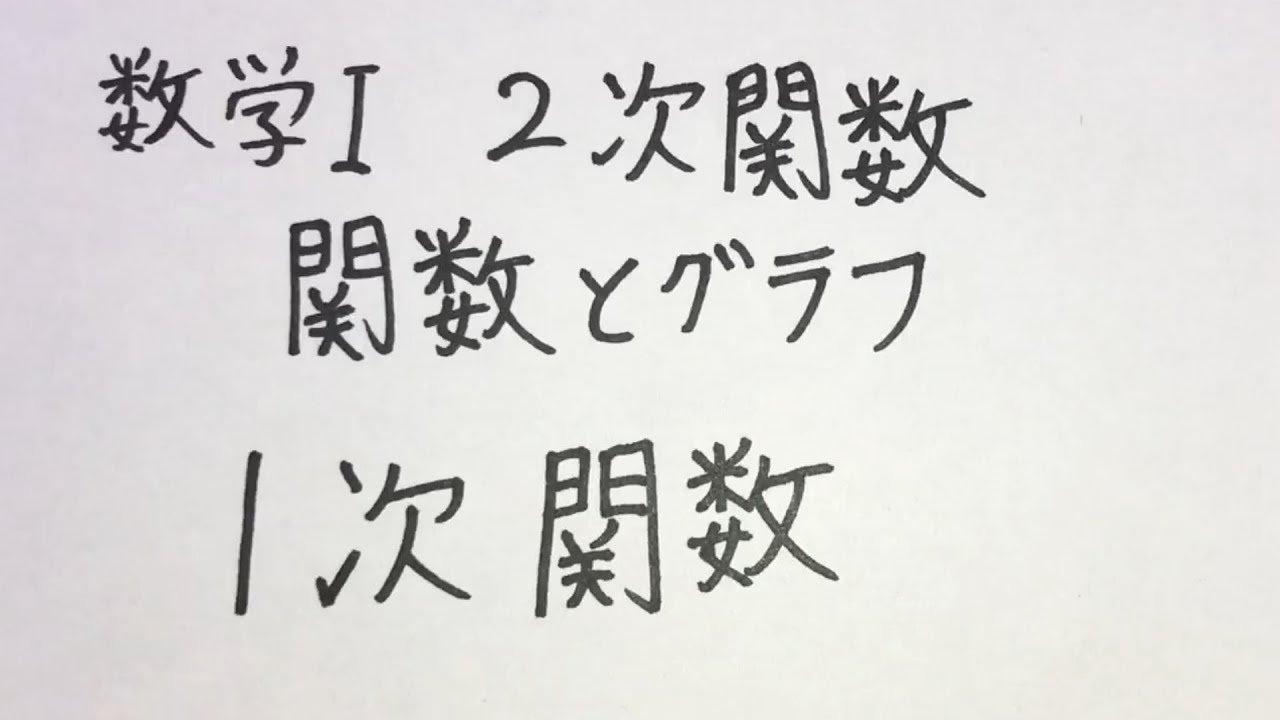 数学I 2次関数
関数とグラフ
1次関数